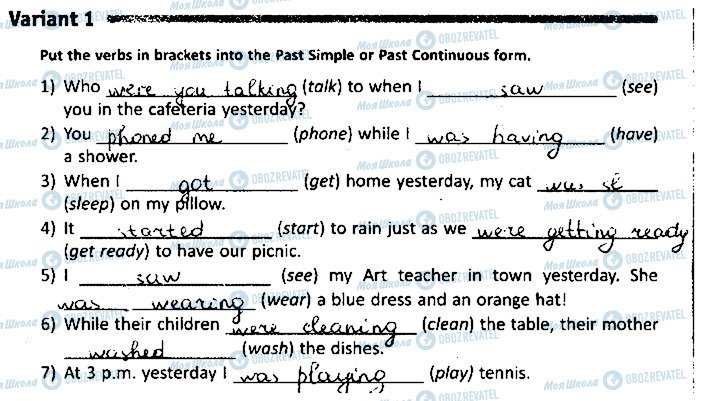 Variant 1
Put the verbs in brackets into the Past Simple or Past Continuous form.
1) Who were you talking (talk) to when I saw (see)
you in the cafeteria yesterday?
2) You phoned me (phone) while I was having (have)
a shower.
3) When I got (get) home yesterday, my cat was sl
(sleep) on my pillow.
4) It started (start) to rain just as we were getting ready
(get ready) to have our picnic.
5) I saw (see) my Art teacher in town yesterday. She
was wearing (wear) a blue dress and an orange hat!
6) While their children were cleaning (clean) the table, their mother
washed (wash) the dishes.
7) At 3 p.m. yesterday I was playing (play) tennis.
Моя Школа OBOZREVATEL